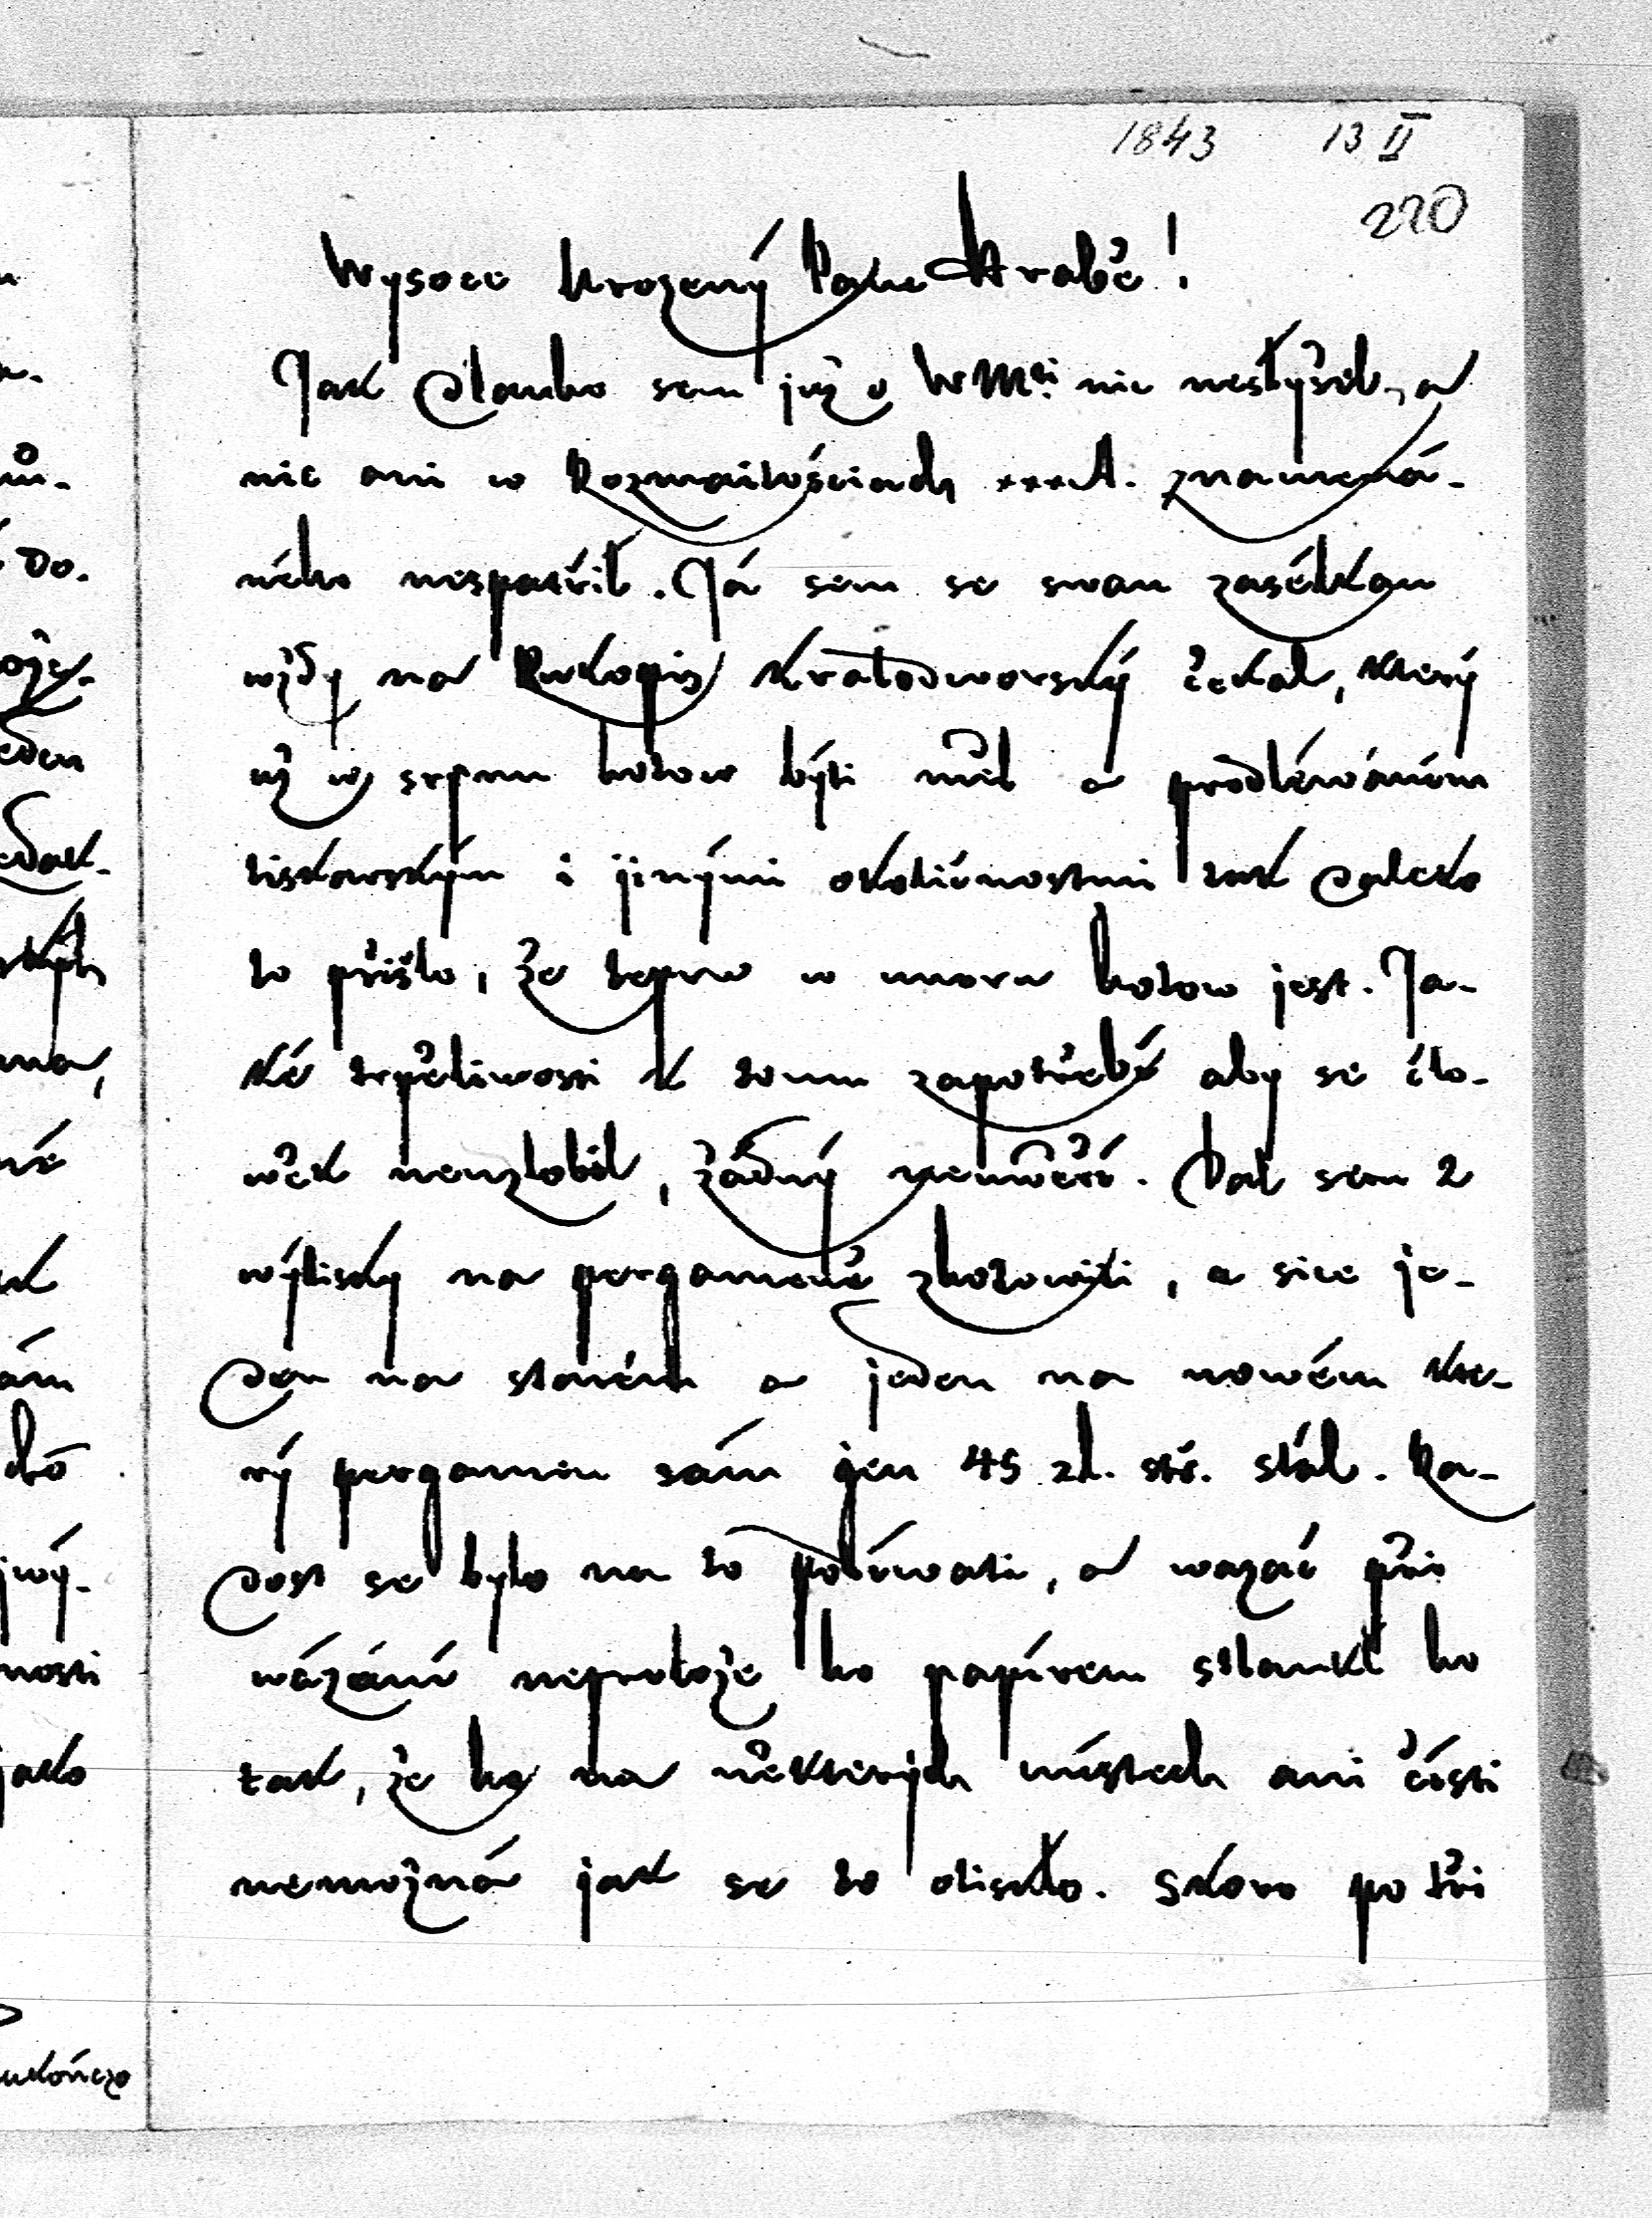 1843 13 II
220
Wysoce Urozený Pane Hrabě!
Jak dlauho sem již o WMti nic neslyšel, a
nic ani w Rozmaitościach ***A. znamená-
ného nespatřil. Já sem se swau zásélkau
wždy na Rukopis Kralodworský čekal, který
už w srpnu hotow býti měl a prodléwáném
tiskařským i jinými okoličnostmi tak daleko
to přišlo, že teprw w unoru hotow jest. Ja-
ké trpěliwosti k tomu zapotřebí aby se člo-
wěk nenzlobil, žádný neuwěří. Dal sem 2
wýtisky na pergameně zhotowiti, a sice je-
den na starém a jeden na nowém kte-
rý pergamen sám jen 45 zl. stř. stál. Ra-
dost se bylo na to podíwati, a wazač při
wázání neprolože ho papírem stlaukl ho
tak, že ho na některých místech ani čísti
nemožná jak se to otisklo. Skoro po tři